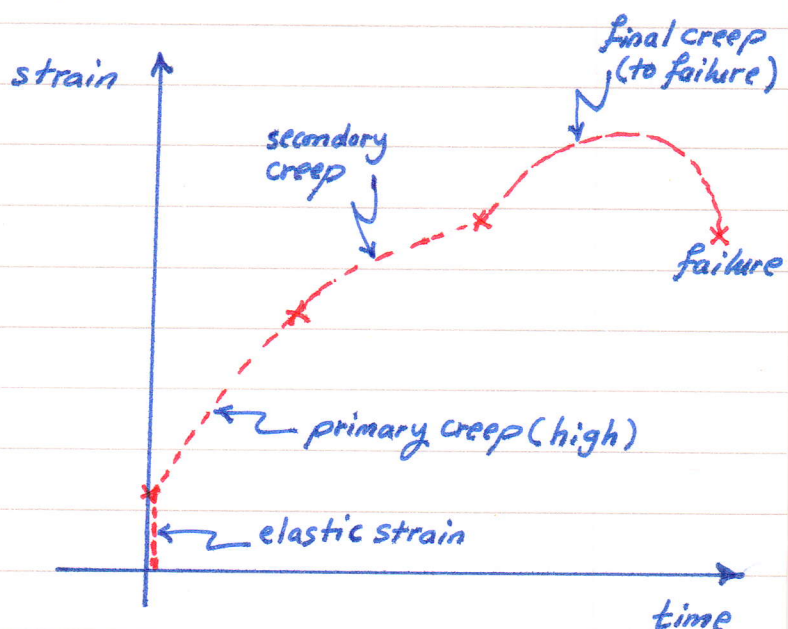 final creep
(to failure)
strain
secondory
creep
failure
primary creep (high)
elastic strain
time